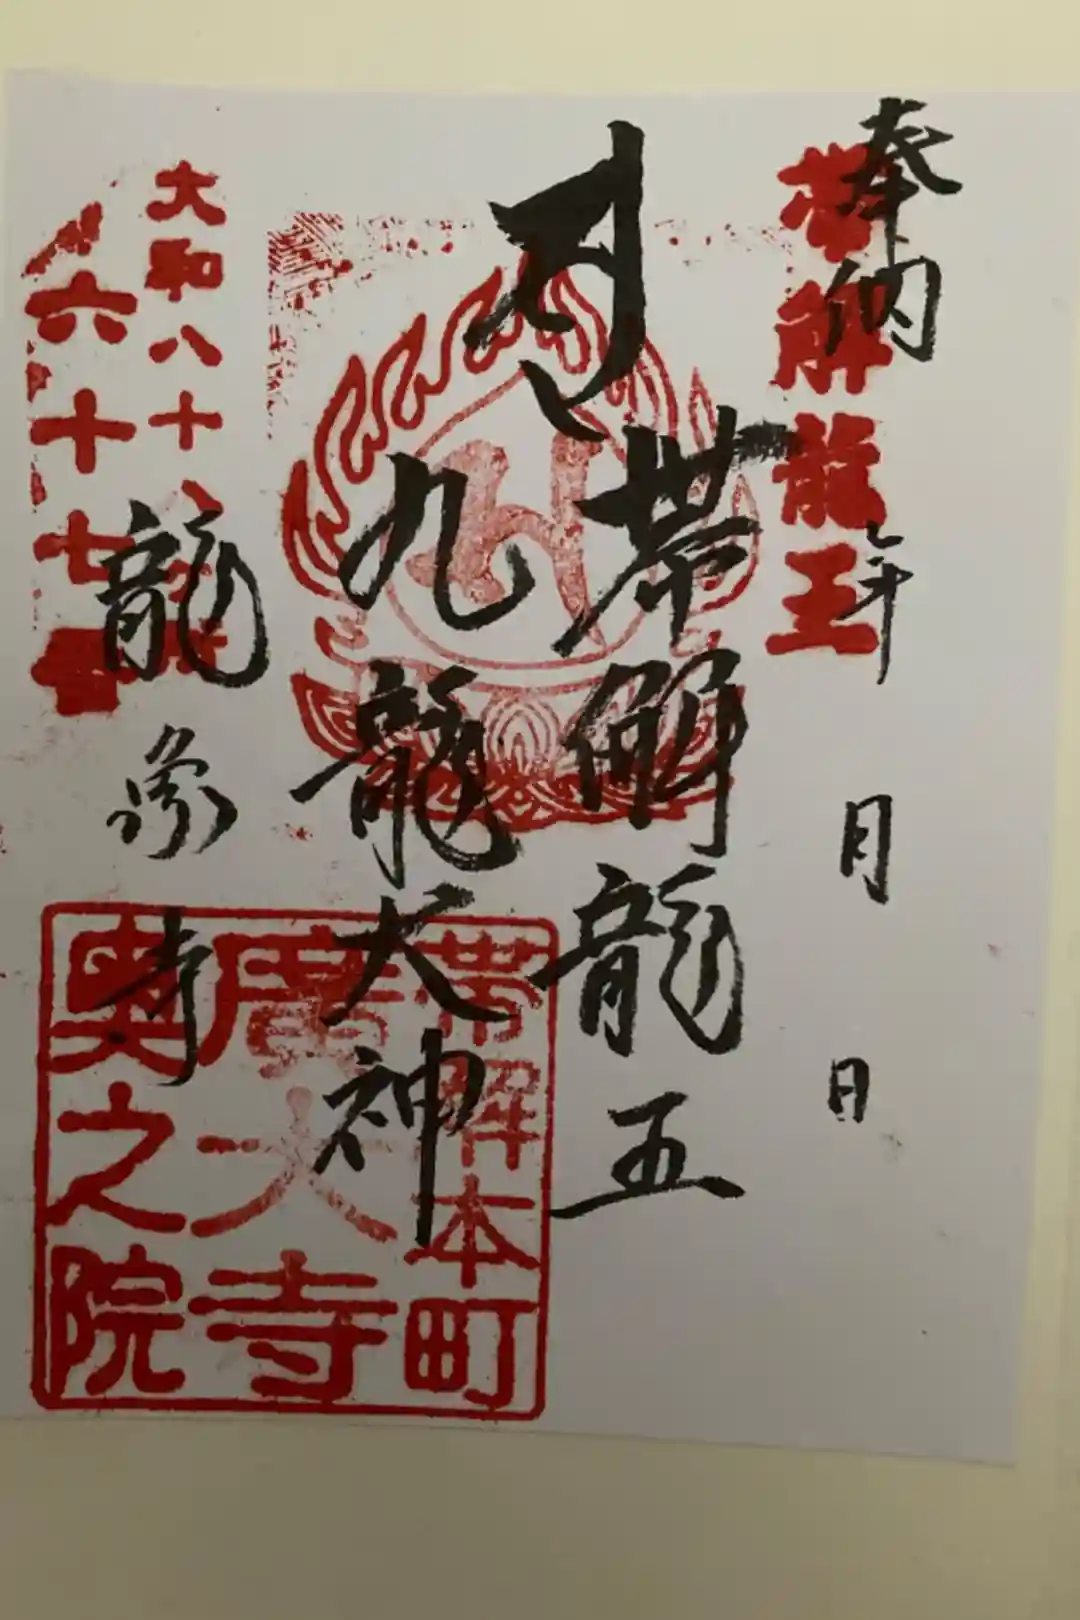 奉納
年 月 日
帯解龍王
帯解龍五
九龍大神
龍象寺
大和八十八
六十七番
帯解本町
廣大寺
奥之院